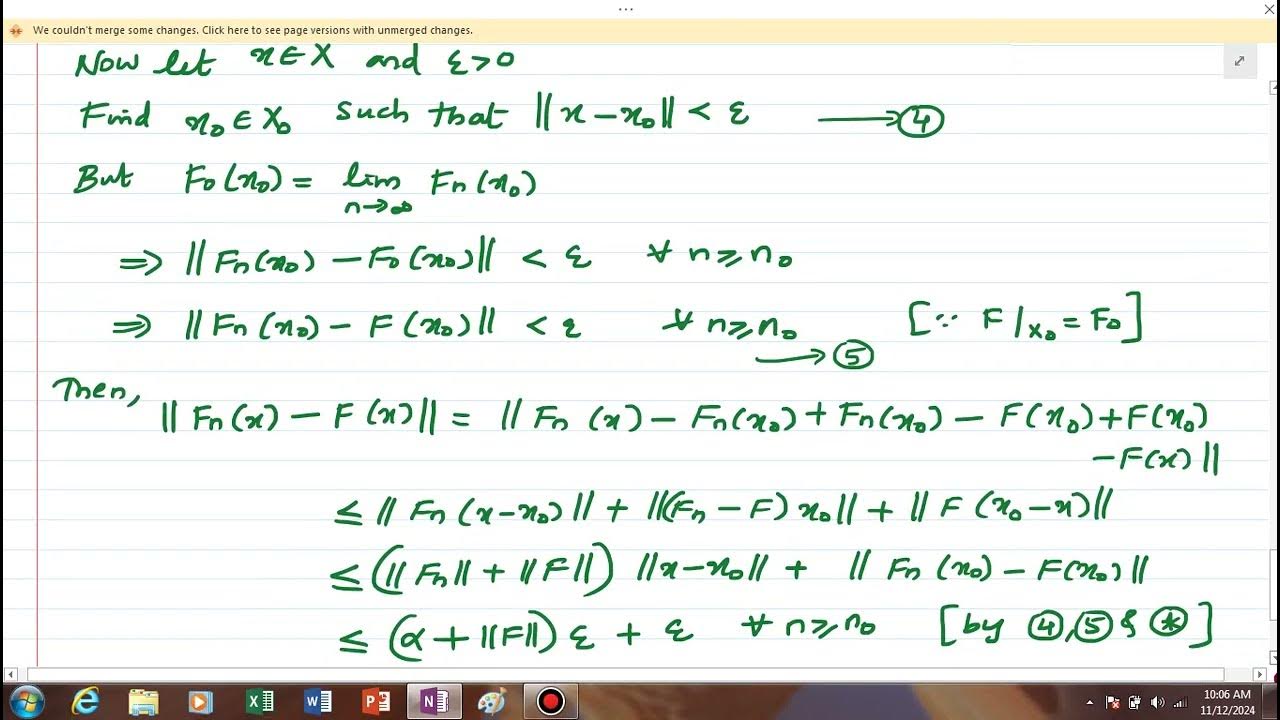 ...
We couldn't merge some changes. Click here to see page versions with unmerged changes.
Now let x∈X and ε>0
Find x₀∈X₀ such that ||x−x₀|| < ε ⟶ ④
But F₀(x₀) = lim Fₙ(x₀)
n→∞
⇒ ||Fₙ(x₀) − F₀(x₀)|| < ε ∀ n≥n₀
⇒ ||Fₙ(x₀) − F(x₀)|| < ε ∀ n≥n₀ [∵ F|x₀ = F₀]
⟶ ⑤
Then,
||Fₙ(x) − F(x)|| = ||Fₙ(x) − Fₙ(x₀) + Fₙ(x₀) − F(x₀) + F(x₀)
−F(x)||
≤ ||Fₙ(x−x₀)|| + ||(Fₙ−F)x₀|| + ||F(x₀−x)||
≤ (||Fₙ|| + ||F||) ||x−x₀|| + ||Fₙ(x₀) − F(x₀)||
≤ (α + ||F||) ε + ε ∀ n≥n₀ [by ④,⑤ & ⊛]
10:06 AM
11/12/2024